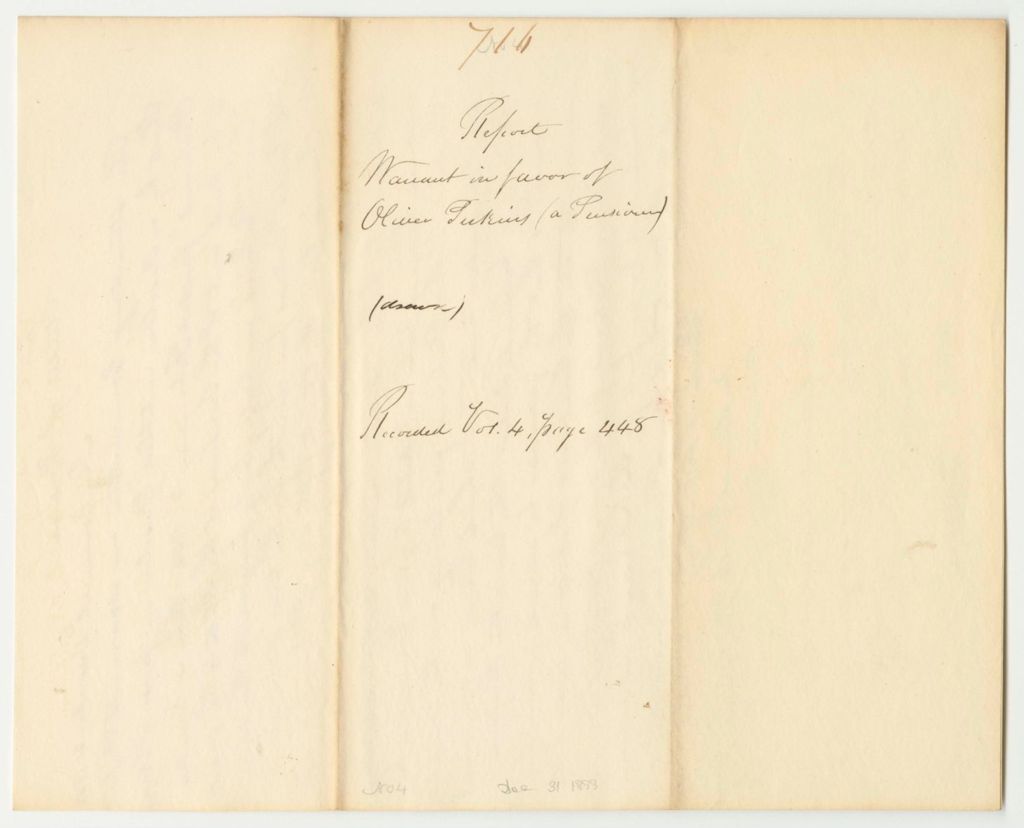 716
Report
Warrant in favor of
Oliver Perkins (a Pensioner)
(drawn)
Recorded Vol. 4, page 448
No 4
Dec 31